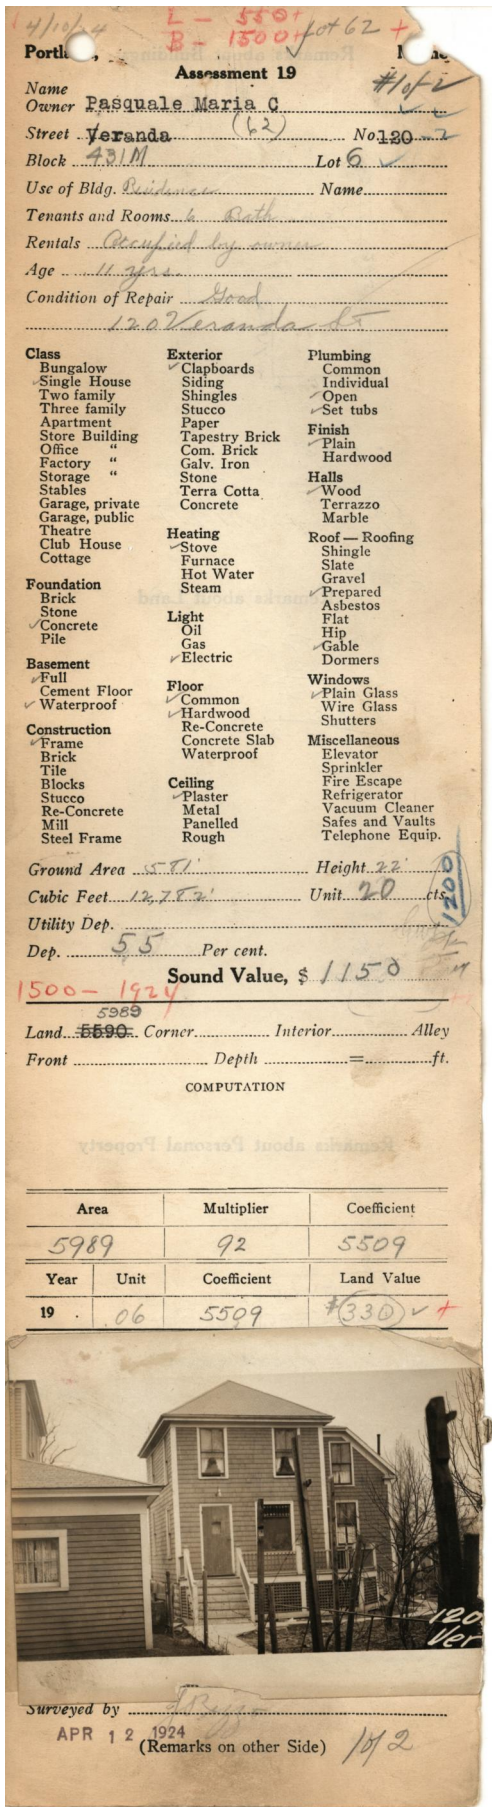 4/10/24 L - 550+ Lot 62 +
B - 1500+
Portland, Maine
Assessment 19
#1 of 2
Name
Owner Pasquale Maria C
Street Veranda (62) No. 120
Block 431M Lot 6
Use of Bldg. Residence Name
Tenants and Rooms 6 Bath
Rentals Occupied by owner
Age 11 yrs.
Condition of Repair Good
120 Veranda St
Class
Bungalow
Single House
Two family
Three family
Apartment
Store Building
Office "
Factory "
Storage "
Stables
Garage, private
Garage, public
Theatre
Club House
Cottage
Foundation
Brick
Stone
Concrete
Pile
Basement
Full
Cement Floor
Waterproof
Construction
Frame
Brick
Tile
Blocks
Stucco
Re-Concrete
Mill
Steel Frame
Exterior
Clapboards
Siding
Shingles
Stucco
Paper
Tapestry Brick
Com. Brick
Galv. Iron
Stone
Terra Cotta
Concrete
Heating
Stove
Furnace
Hot Water
Steam
Light
Oil
Gas
Electric
Floor
Common
Hardwood
Re-Concrete
Concrete Slab
Waterproof
Ceiling
Plaster
Metal
Panelled
Rough
Plumbing
Common
Individual
Open
Set tubs
Finish
Plain
Hardwood
Halls
Wood
Terrazzo
Marble
Roof — Roofing
Shingle
Slate
Gravel
Prepared
Asbestos
Flat
Hip
Gable
Dormers
Windows
Plain Glass
Wire Glass
Shutters
Miscellaneous
Elevator
Sprinkler
Fire Escape
Refrigerator
Vacuum Cleaner
Safes and Vaults
Telephone Equip.
Ground Area 581' Height 22'
Cubic Feet 12,782' Unit 20 cts.
1200
Utility Dep.
Dep. 55 Per cent.
Sound Value, $ 1150
1500 - 1924
5989
Land 5590 Corner Interior Alley
Front Depth = ft.
COMPUTATION
Area Multiplier Coefficient
5989 92 5509
Year Unit Coefficient Land Value
19 .06 5509 $330 +
120
Ver
Surveyed by
APR 12 1924
(Remarks on other Side) 1 of 2